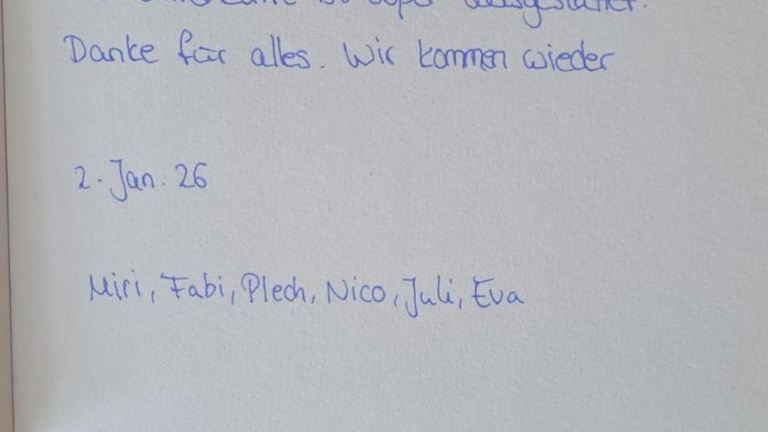 ist super ausgestattet.
Danke für alles. Wir kommen wieder
2. Jan. 26
Miri, Fabi, Plech, Nico, Juli, Eva